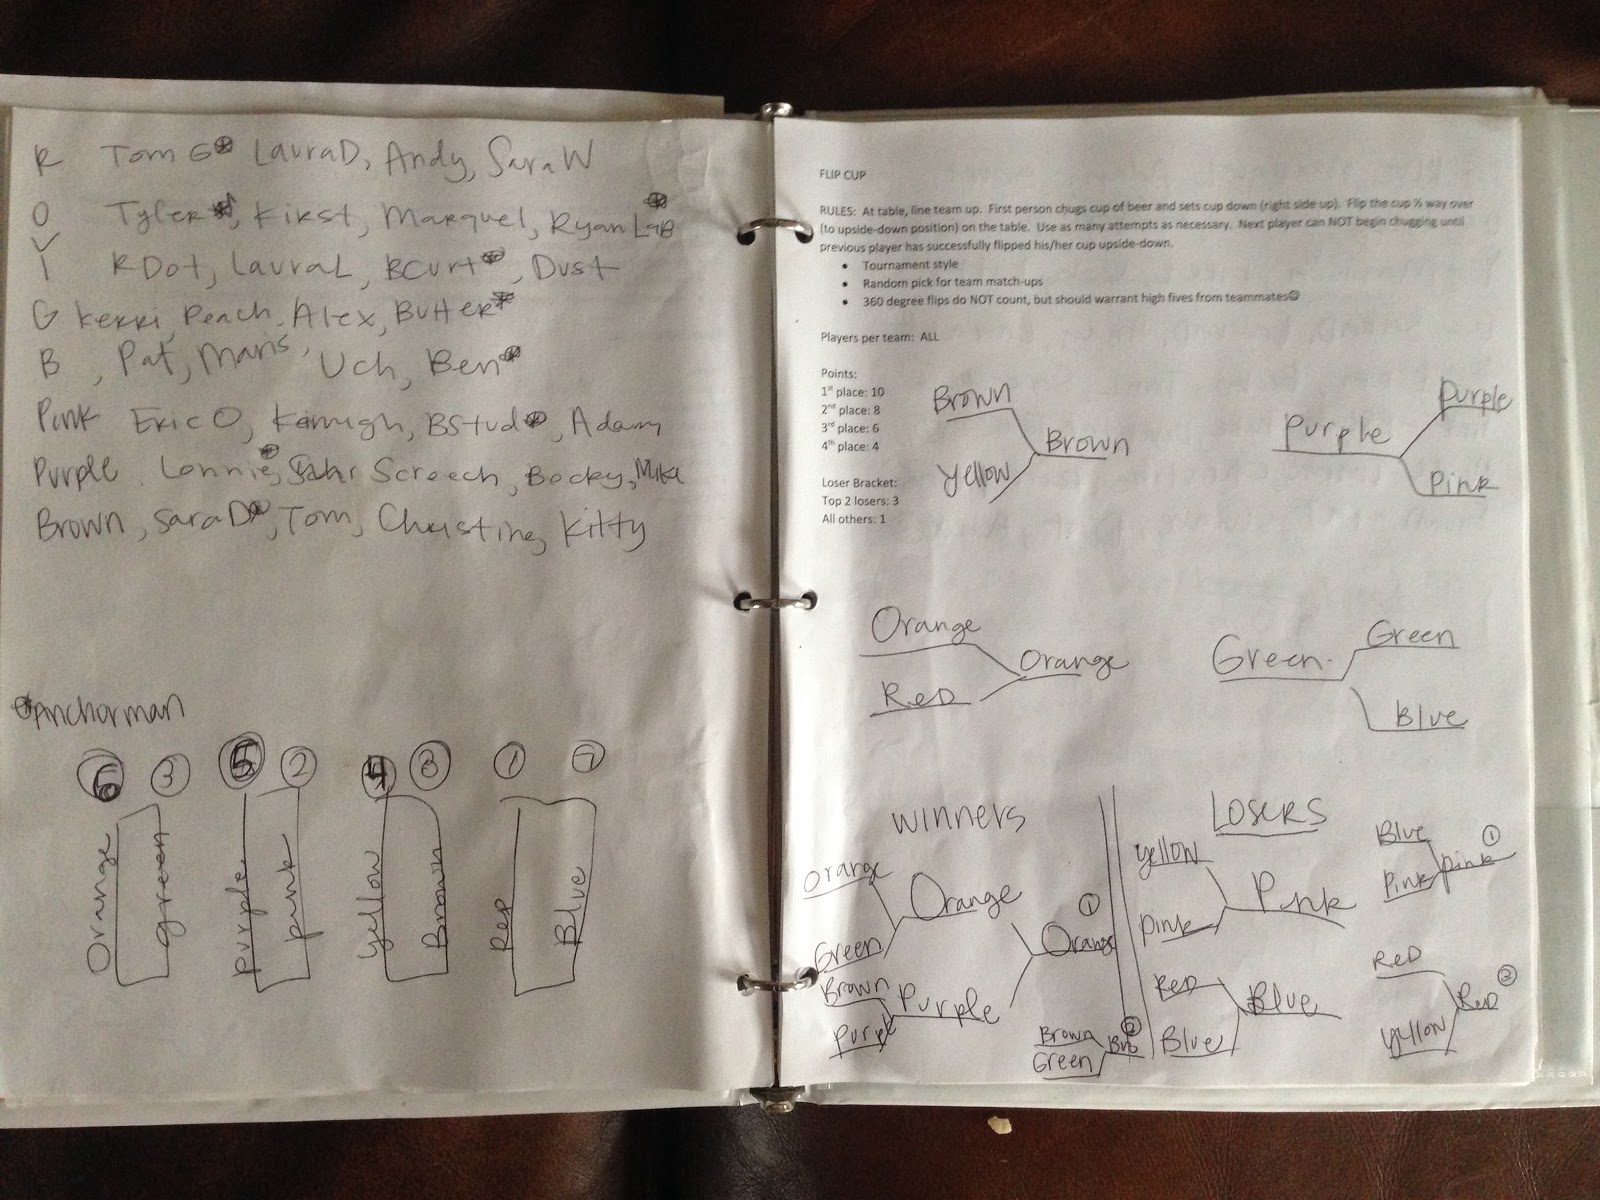 R Tom G* LauraD, Andy, Sara W
O Tyler*, Kirst, Marquel, Ryan LaB*
Y RDot, LauraL, BCurt*, Dust
G Kerri, Peach, Alex, Butter*
B , Pat, Maris, Uch, Ben*
Pink Eric O, BStud*, Adam
Purple Lonnie*, Screech, Becky, Mike
Brown, SaraD*, Tom, Christine, Kitty
*Anchorman
6 3 5 2 4 8 1 7
Orange green purple pink yellow Brown Red Blue
FLIP CUP
RULES: At table, line team up. First person chugs cup of beer and sets cup down (right side up). Flip the cup ½ way over
(to upside-down position) on the table. Use as many attempts as necessary. Next player can NOT begin chugging until
previous player has successfully flipped his/her cup upside-down.
• Tournament style
• Random pick for team match-ups
• 360 degree flips do NOT count, but should warrant high fives from teammates☺
Players per team: ALL
Points:
1st place: 10
2nd place: 8
3rd place: 6
4th place: 4
Loser Bracket:
Top 2 losers: 3
All others: 1
Brown
Yellow
Brown
Purple
Purple
Pink
Orange
Red
Orange
Green.
Green
Blue
WINNERS
Orange
Green
Orange
Brown
Purpl
Purple
1
Orange
2
Brown
Green
Bro
LOSERS
Yellow
Pink
Pink
Red
Blue
Blue
Blue
Pink
1
Pink
Red
Yellow
2
Red